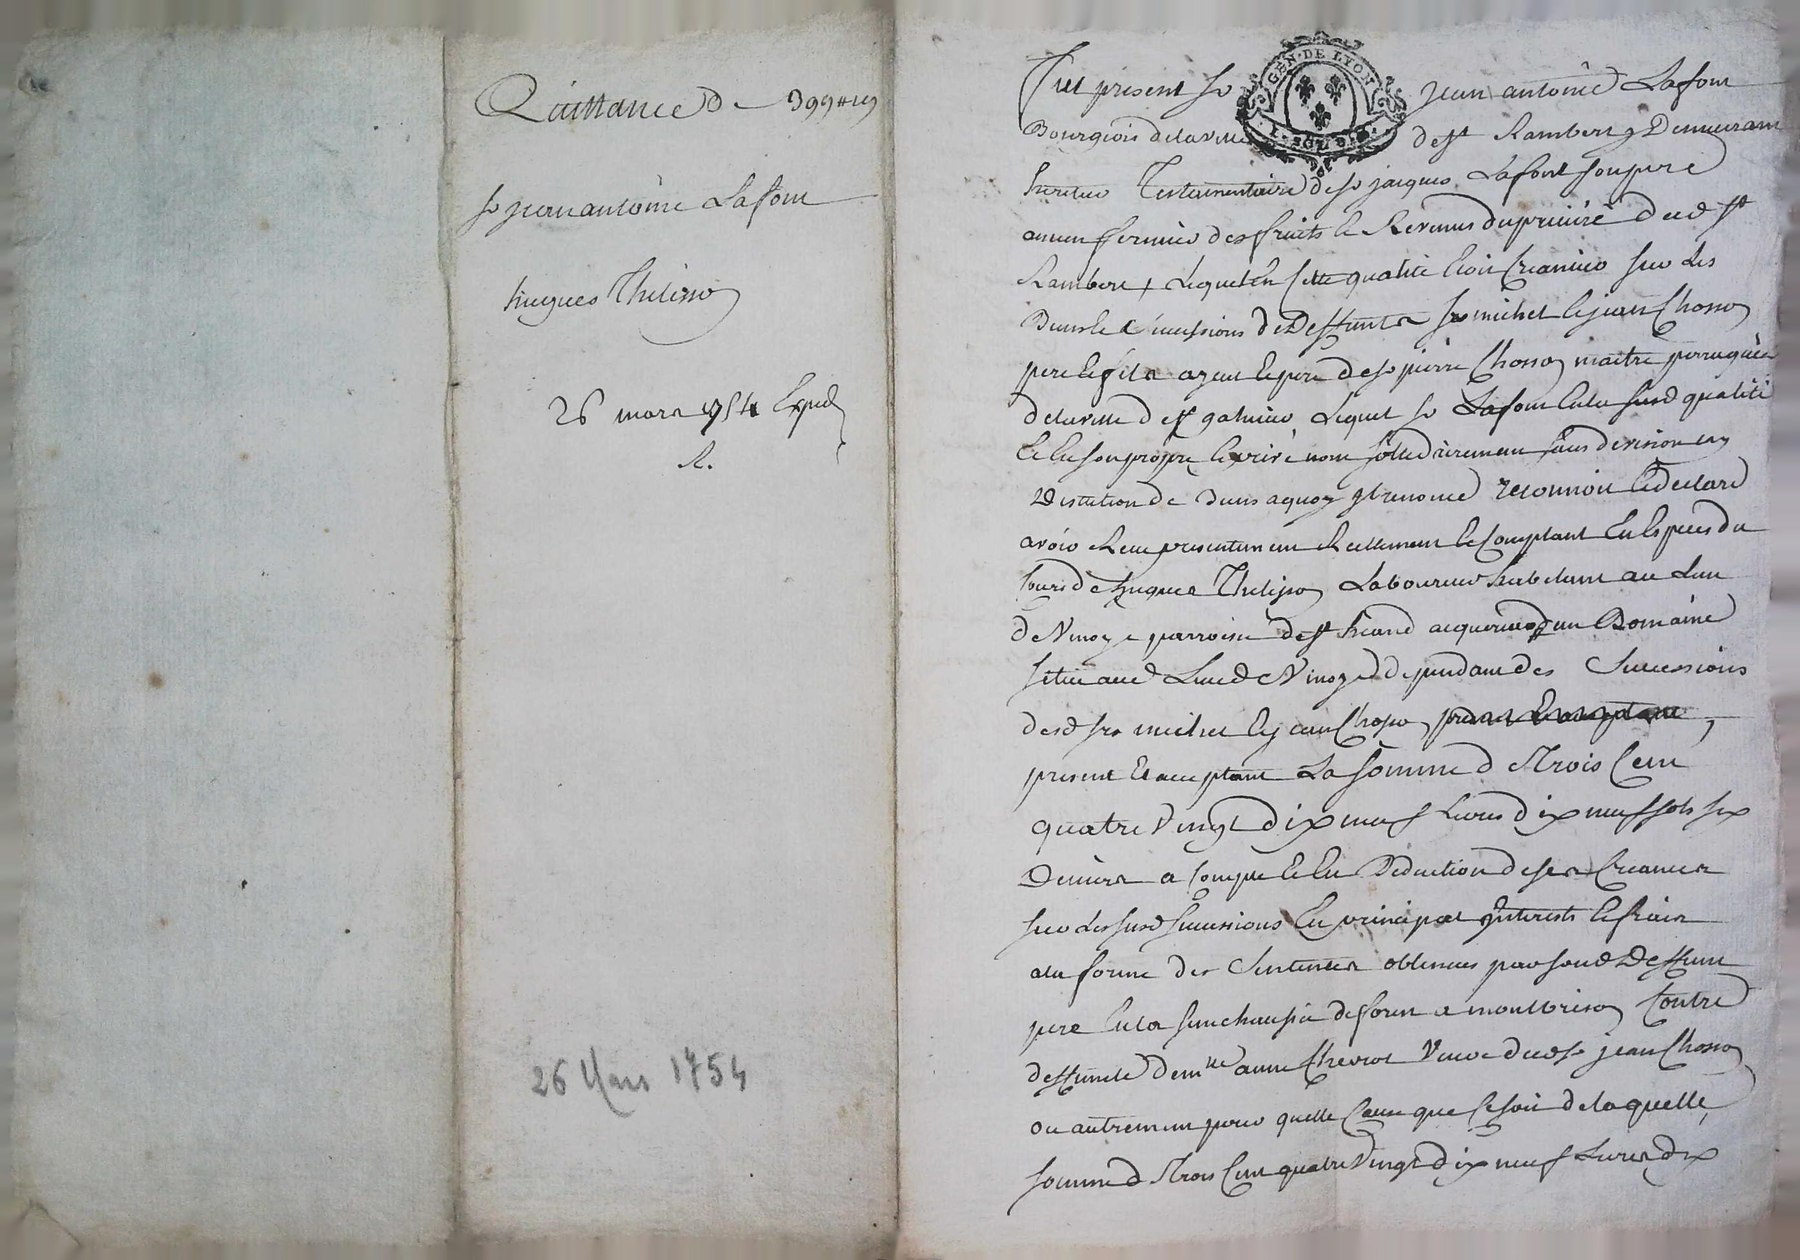 Quittance de 399# 19
sr jean antoine Lafont
hugues Thelisson
26 mars 1754 Exped
R.
26 Mars 1754
GEN·DE LYON
Fut présent sr jean antoine Lafont
Bourgeois de la ville de st Rambert y Demeurant
heritier Testamentaire de sr jacques Lafont son pere
ancien fermier des fruits et Revenus du prieuré dud st
Rambert, Lequel En cette qualité Etoit Creancier sur Les
Biens et successions de Deffunts srs michel et jean Chosson
pere et fils ayeul et pere de sr pierre Chosson maitre perruquier
de la ville de st galmier, Lequel sr Lafont En la susd qualité
et En son propre et privé nom sollidairement sans division ny
Distiction de Biens a quoy il renonce reconnoit et declare
avoir Receu presentement Reellement et Comptant En Especes du
Cours de hugues Thelisson Laboureur habitant au Lieu
de Vinoye parroisse de st heand acquereur d'un Domaine
scitué aud Lieu de Vinoye dependant des Successions
desd srs michel et jean Chosson
present Et acceptant La somme de Trois Cent
quatre Vingt dix neuf Livres dix neuf sols six
Deniers a Compte et En Deduction de ses Creances
sur les susd successions En principal Interests et frais
a la forme des Sentences obtenues par son d Deffunt
pere En la senechaussée de forest a montbrison Contre
deffuncte demlle anne Chevrot Veuve dud sr jean Chosson
ou autrement pour quelle Cause que Ce soit de laquelle
somme de Trois Cent quatre Vingt dix neuf Livres dix